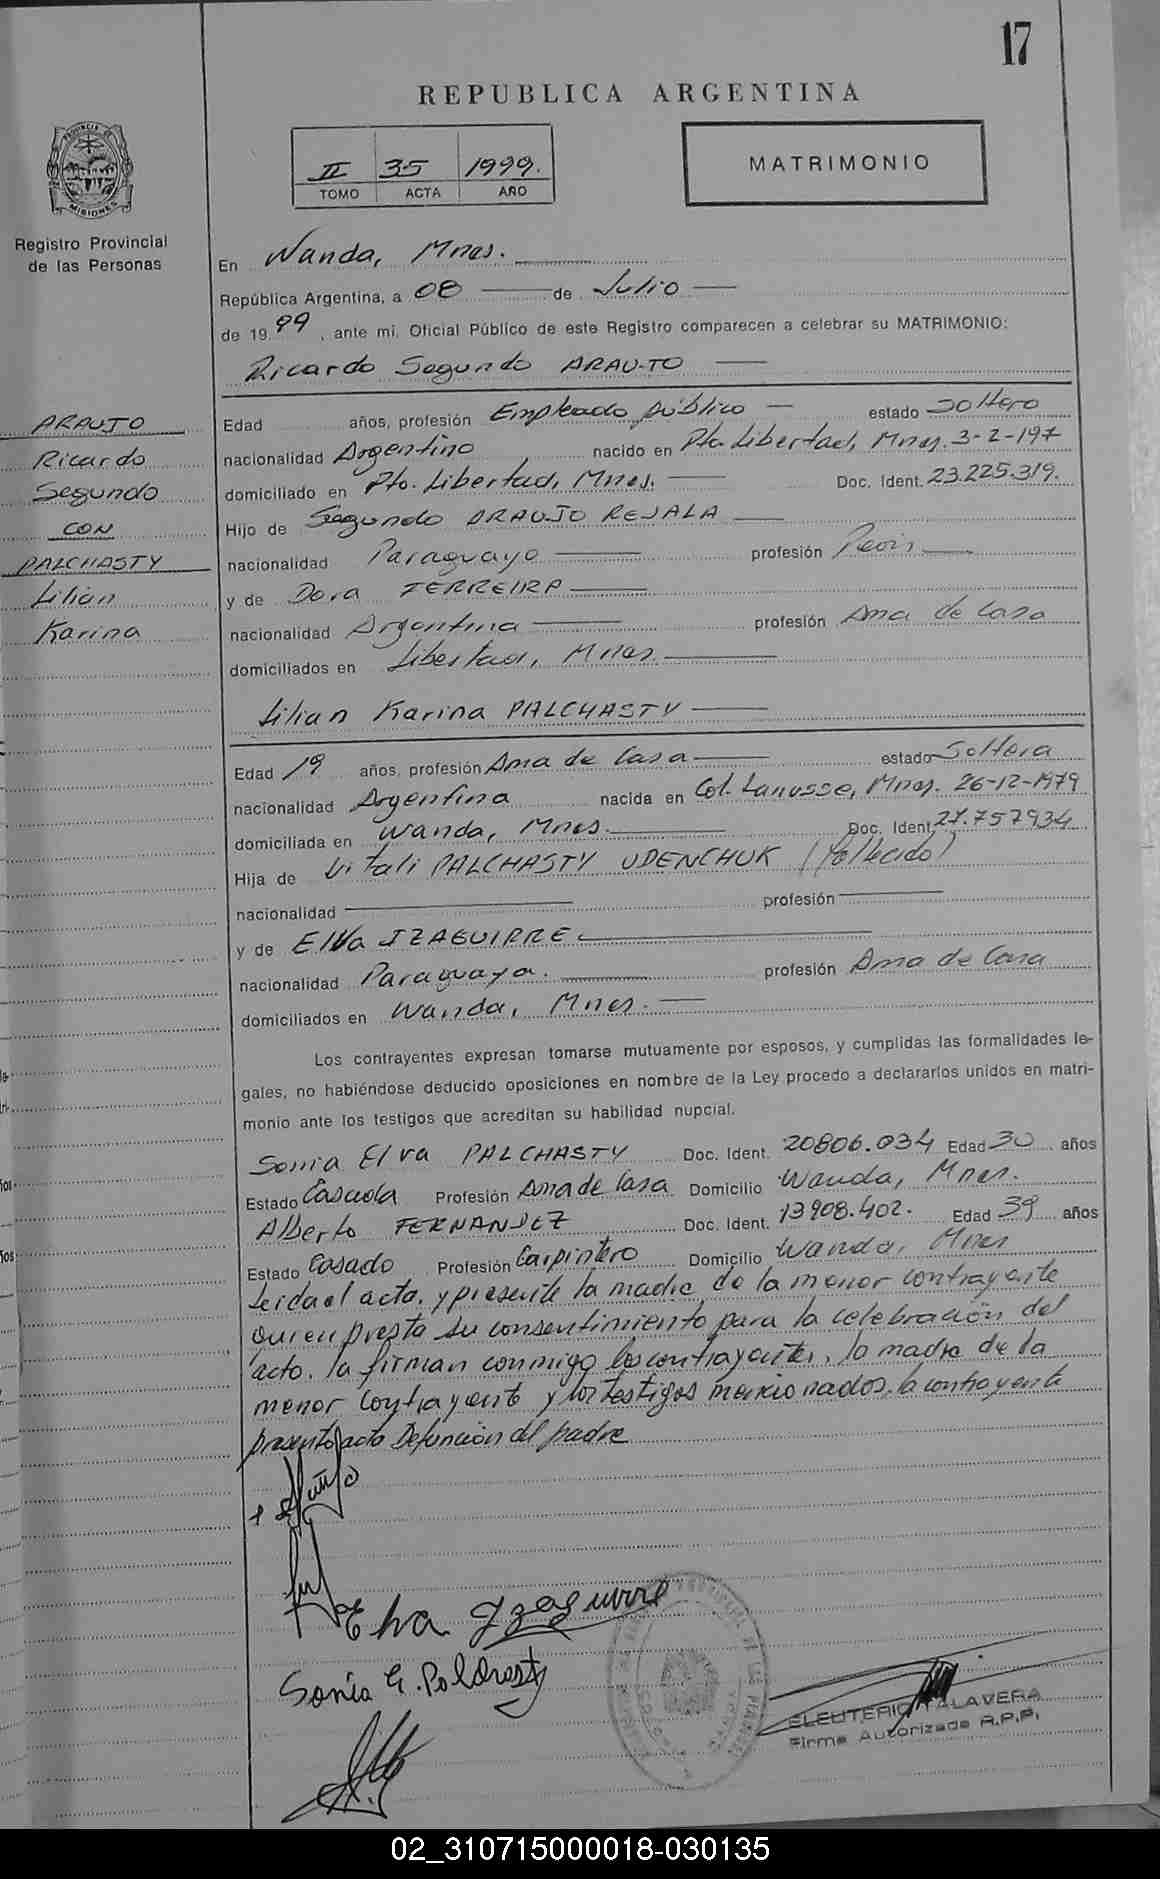 17
REPUBLICA ARGENTINA
II 35 1999.
TOMO ACTA AÑO
MATRIMONIO
PROVINCIA DE
MISIONES
Registro Provincial
de las Personas
En Wanda, Mnes.
República Argentina, a 08 de Julio
de 19 99, ante mi, Oficial Público de este Registro comparecen a celebrar su MATRIMONIO:
Ricardo Segundo ARAUJO
ARAUJO
Ricardo
Segundo
CON
PALCHASTY
Lilian
Karina
Edad años, profesión Empleado público estado Soltero
nacionalidad Argentino nacido en Pto. Libertad, Mnes. 3-2-197
domiciliado en Pto. Libertad, Mnes. Doc. Ident. 23.225.319.
Hijo de Segundo ARAUJO REJALA
nacionalidad Paraguayo profesión
y de Dora FERREIRA
nacionalidad Argentina profesión Ama de Casa
domiciliados en Libertad, Mnes.
Lilian Karina PALCHASTY
Edad 19 años, profesión Ama de Casa estado Soltera
nacionalidad Argentina nacida en Col. Lanusse, Mnes. 26-12-1979
domiciliada en Wanda, Mnes. Doc. Ident. 27.757934
Hija de Vitali PALCHASTY UDENCHUK (Fallecido)
nacionalidad profesión
y de Elva IZAGUIRRE
nacionalidad Paraguaya. profesión Ama de Casa
domiciliados en Wanda, Mnes.
Los contrayentes expresan tomarse mutuamente por esposos, y cumplidas las formalidades le-
gales, no habiéndose deducido oposiciones en nombre de la Ley procedo a declararlos unidos en matri-
monio ante los testigos que acreditan su habilidad nupcial.
Sonia Elva PALCHASTY Doc. Ident. 20806.034 Edad 30 años
Estado Casada Profesión Ama de Casa Domicilio Wanda, Mnes.
Alberto FERNANDEZ Doc. Ident. 13908.402. Edad 39 años
Estado Casado Profesión Carpintero Domicilio Wanda, Mnes
Leida el acta, y presente la madre de la menor contrayente
quien presta su consentimiento para la celebración del
acto, la firman conmigo los contrayentes, la madre de la
menor contrayente y los testigos mencionados, la contrayente
presento acta Defunción del padre
Elva Izaguirre
Sonia E. Palchasty
ELEUTERIO TALAVERA
Firma Autorizada R.P.P.
02_310715000018-030135